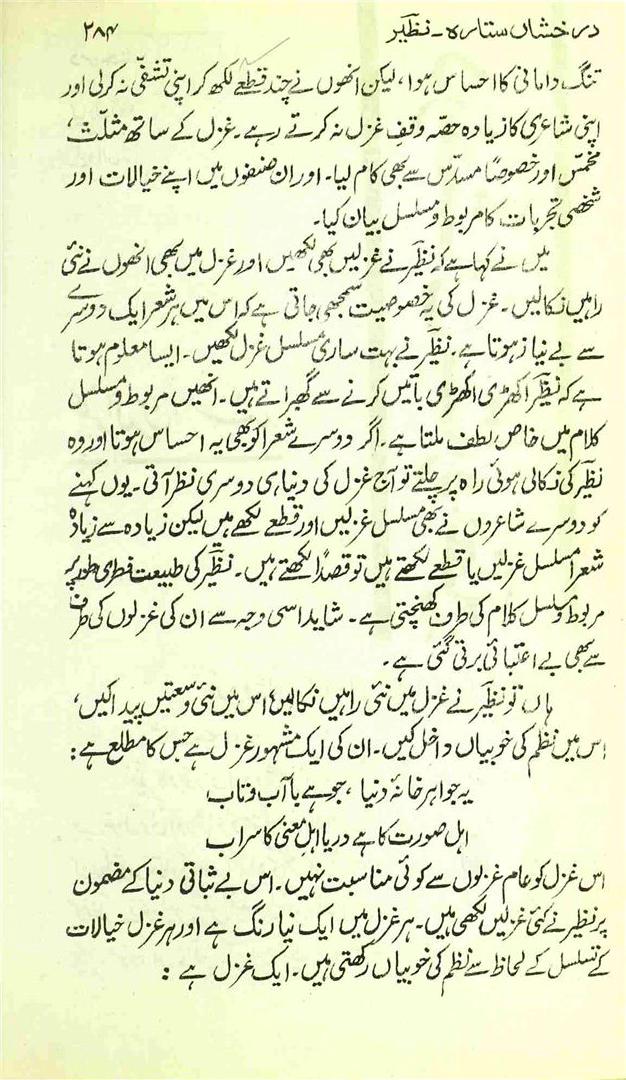 درخشاں ستارہ۔ نظیرؔ ۲۸۴
تنگ دامانی کا احساس ہوا، لیکن انھوں نے چند قطعے لکھ کر اپنی تشفّی نہ کرلی اور
اپنی شاعری کا زیادہ حصّہ وقفِ غزل نہ کرتے رہے۔ غزل کے ساتھ مثلّث،
مخمّس اور خصوصاً مسدّس سے بھی کام لیا۔ اور ان صنفوں میں اپنے خیالات اور
شخصی تجربات کا مربوط و مسلسل بیان کیا۔
میں نے کہا ہے کہ نظیرؔ نے غزلیں بھی لکھیں اور غزل میں بھی انھوں نے نئی
راہیں نکالیں۔ غزل کی یہ خصوصیت سمجھی جاتی ہے کہ اس میں ہر شعر ایک دوسرے
سے بے نیاز ہوتا ہے۔ نظیرؔ نے بہت ساری مسلسل غزل لکھیں۔ ایسا معلوم ہوتا
ہے کہ نظیرؔ اکھڑی اکھڑی باتیں کرنے سے گھبراتے ہیں۔ انھیں مربوط و مسلسل
کلام میں خاص لطف ملتا ہے۔ اگر دوسرے شعرا کو بھی یہ احساس ہوتا اور وہ
نظیرؔ کی نکالی ہوئی راہ پر چلتے تو آج غزل کی دنیا ہی دوسری نظر آتی۔ یوں کہنے
کو دوسرے شاعروں نے بھی مسلسل غزلیں اور قطعے لکھے ہیں لیکن زیادہ سے زیادہ
شعرا مسلسل غزلیں یا قطعے لکھتے ہیں تو قصداً لکھتے ہیں۔ نظیرؔ کی طبیعت فطری طور پر
مربوط و مسلسل کلام کی طرف کھنچتی ہے۔ شاید اسی وجہ سے ان کی غزلوں کی طرف
سے بھی بے اعتنائی برتی گئی ہے۔
ہاں تو نظیرؔ نے غزل میں نئی راہیں نکالیں، اس میں نئی وسعتیں پیدا کیں،
اس میں نظم کی خوبیاں داخل کیں۔ ان کی ایک مشہور غزل ہے جس کا مطلع ہے:
یہ جواہر خانۂ دنیا، جو ہے باآب و تاب
اہل صورت کا ہے دریا اہلِ معنی کا سراب
اس غزل کو عام غزلوں سے کوئی مناسبت نہیں۔ اس بے ثباتی دنیا کے مضمون
پر نظیرؔ نے کئی غزلیں لکھی ہیں۔ ہر غزل میں ایک نیا رنگ ہے اور ہر غزل خیالات
کے تسلسل کے لحاظ سے نظم کی خوبیاں رکھتی ہیں۔ ایک غزل ہے :